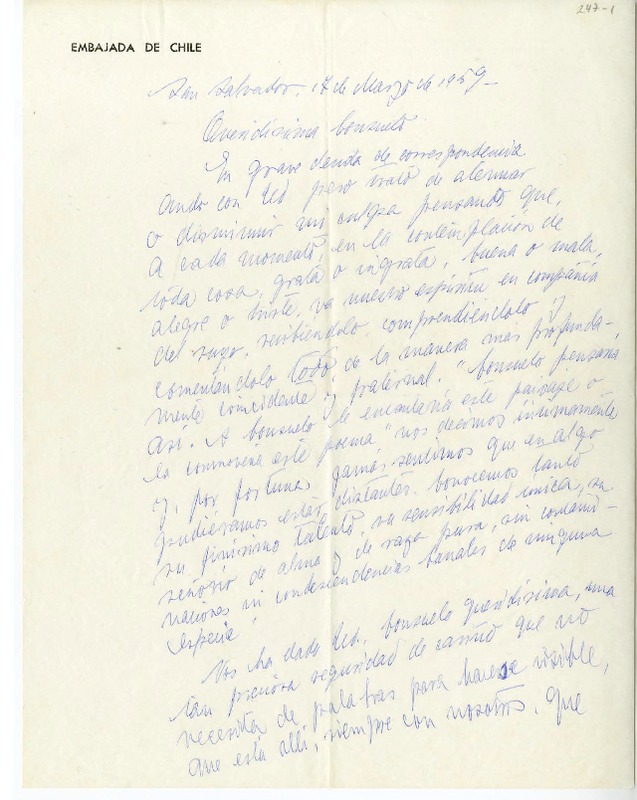 247-1
EMBAJADA DE CHILE
San Salvador, 17 de Marzo de 1959-
Queridísima Consuelo
En grave deuda de correspondencia
ando con Ud pero trato de atenuar
o disminuir mi culpa pensando que,
a cada momento, en la contemplación de
toda cosa, grata o ingrata, buena o mala,
alegre o triste, va nuestro espíritu en compañía
del suyo, recibiéndolo comprendiéndolo y
comentándolo todo de la manera más profunda-
mente coincidente y fraternal. "Consuelo pensaría
así. A Consuelo le encantaría este paisaje o
la conmovería este poema" nos decimos íntimamente
y, por fortuna jamás sentimos que en algo
pudiéramos estar distantes. Conocemos tanto
su finísimo talento, su sensibilidad única, su
señorío de alma y de raza pura, sin contami-
naciones ni condescendencias banales de ninguna
especie"
Nos ha dado Ud., Consuelo queridísima, una
tan preciosa seguridad de cariño que no
necesita de palabras para hacerse visible,
que está allí, siempre con nosotros. Que